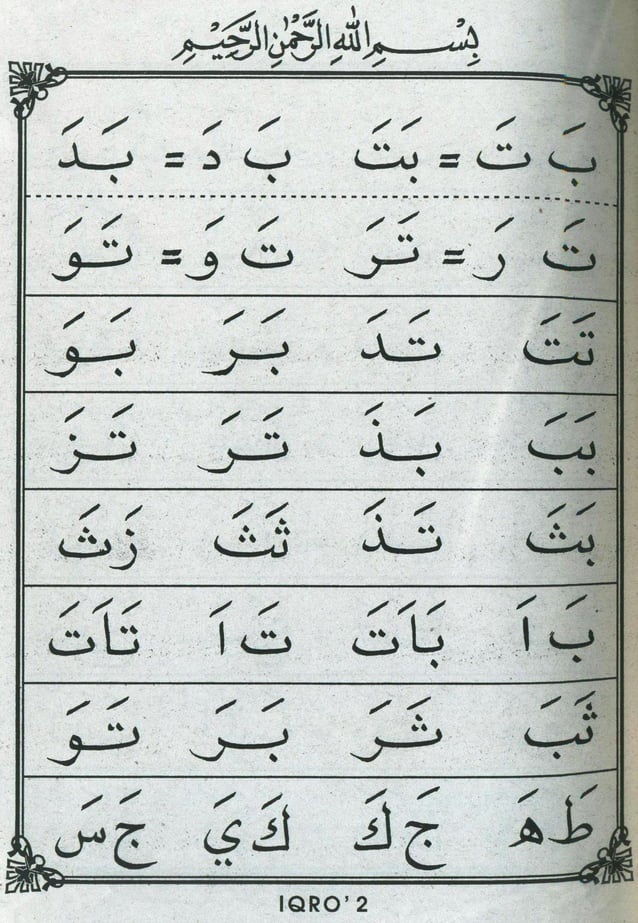 بِسْمِ اللهِ الرَّحْمٰنِ الرَّحِيْمِ
بَ تَ = بَتَ بَ دَ = بَدَ
تَ رَ = تَرَ تَ وَ = تَوَ
تَتَ تَدَ بَرَ بَوَ
بَبَ بَذَ تَرَ تَزَ
بَثَ تَذَ ثَثَ زَثَ
بَ اَ بَاَتَ تَ اَ تَاَتَ
ثَبَ ثَرَ بَرَ تَوَ
طَ هَ جَ كَ كَ يَ جَ سَ
IQRO' 2